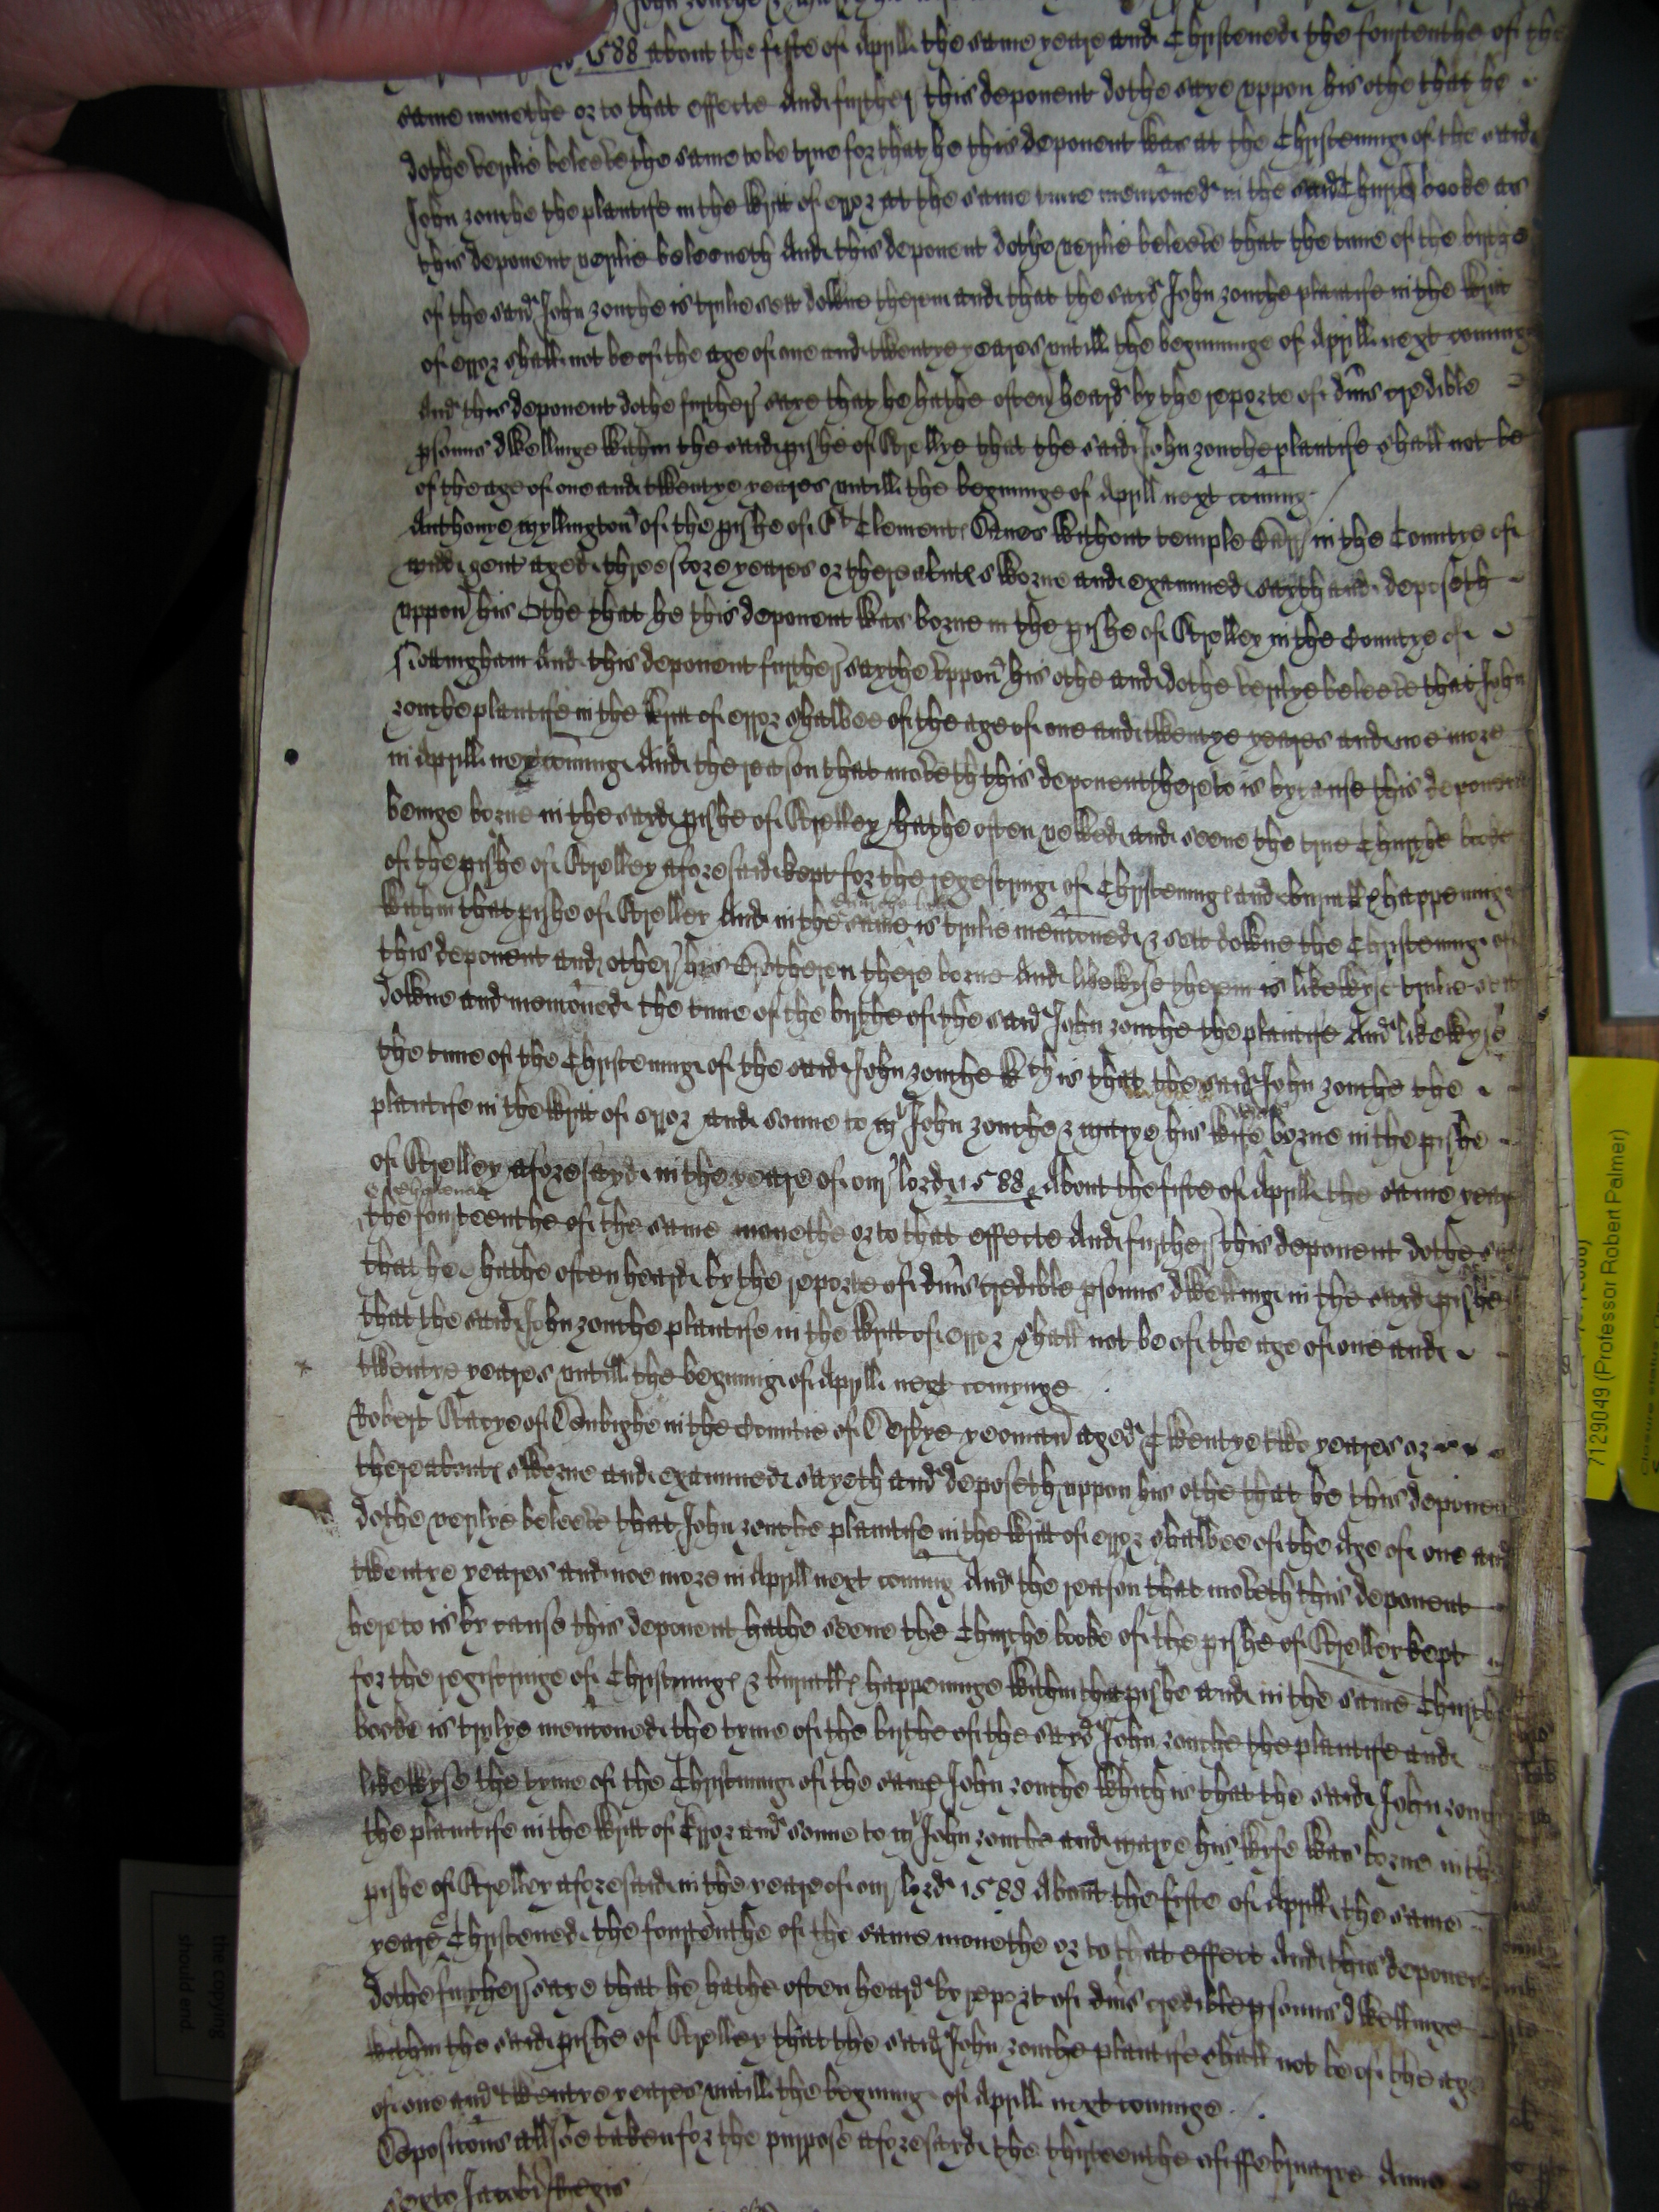 1588 about the firste of Aprill the same yeare and Christened the fourtenthe of the
same monethe or to that effecte And further this deponent dothe saye vppon his othe that he
dothe verilie beleeve the same to be true for that he this deponent was at the Christening of the said
John zouche the plantife in the writt of error at the same time mencioned in the said Church booke as
this deponent verilie beleeueth And this deponent dothe verilie beleeve that the time of the birthe
of the said John zouche is trulie sett downe therein and that the said John zouche plantife in the writt
of error shall not be of the age of one and twentye yeares vntill the beginninge of Aprill next coming
And this deponent dothe further saye that he hathe often heard by the reporte of diuers credible
psonns dwellinge within the said pishe of Strellye that the said John zouche plantife shall not be
of the age of one and twentye yeares vntill the beginninge of Aprill next coming
Anthonye Myllington of the pishe of St Clement Danes without temple Barr in the Countye of
midd gent aged three score yeares or thereaboutes sworne and examined sayth and deposeth
vppon his Othe that he this deponent was borne in the pishe of Strelley in the Countye of
Nottingham And this deponent further saythe vppon his othe and dothe verilye beleeve that John
zouche plantife in the writt of error shalbee of the age of one and twentye yeares and noe more
in Aprill next coming And the reason that moveth this deponent thereto is bycause this deponent
beinge borne in the said pishe of Strelley hathe often vewed and seene the true Churche booke
of the pishe of Strelley aforesaid kept for the regestring of Christeninges and burialles happening
within that pishe of Strelley And in the same is trulie mencioned & sett downe the Christening of
this deponent and other his Bretheren there borne And likewyse therein is likewyse trulie sett
downe and mencioned the time of the birthe of the said John zouche the plantife And likewyse
the time of the Christening of the said John zouche wch is that the said John zouche the
plantife in the writt of error and sonne to mr John zouche & marye his wife borne in the pishe
of Strelley aforesayd in the yeare of our lord 1588 About the firste of Aprill the same yeare
the fourteenthe of the same monethe or to that effecte And further this deponent dothe
that he hathe often heard by the reporte of diuers credible psonns dwelling in the said pishe
that the said John zouche plantife in the writt of error shall not be of the age of one and
twentye yeares vntill the beginning of Aprill next comynge
Robert of Denbighe in the Countie of Derbye yeoman aged Twentye two yeares or
thereaboutes sworne and examined sayeth and deposeth vppon his othe that he this deponent
dothe verilye beleeve that John zouche plantife in the writt of error shalbee of the Age of one and
twentye yeares and noe more in Aprill next coming And the reason that moveth this deponent
hereto is by cause this deponent hathe seene the Churche booke of the pishe of Strelley kept
for the registringe of Christninges & burialles happeninge within that pishe and in the same Church
booke is trulye mencioned the tyme of the birthe of the sayd John zouche the plantife and
likewyse the tyme of the Christning of the same John zouche which is that the said John zouche
the plantife in the writt of Error and sonne to mr John zouche and marye his wyfe was borne in the
pishe of Strelley aforesaid in the yeare of our lord 1588 About the firste of Aprill the same
yeare Christened the fourtenthe of the same monethe or to that effect And this deponent
dothe further saye that he hathe often heard by report of diuers credible psonns dwellinge
within the said pishe of Strelley that the said John zouche plantife shall not be of the age
of one and twentye yeares vntill the beginning of Aprill next cominge
Deposicions allsoe taken for the purpose aforesayd the thirteenthe of ffebruarye Anno
sexto Jacobi Regis
7129049 (Professor Robert Palmer)
the copying
should end.